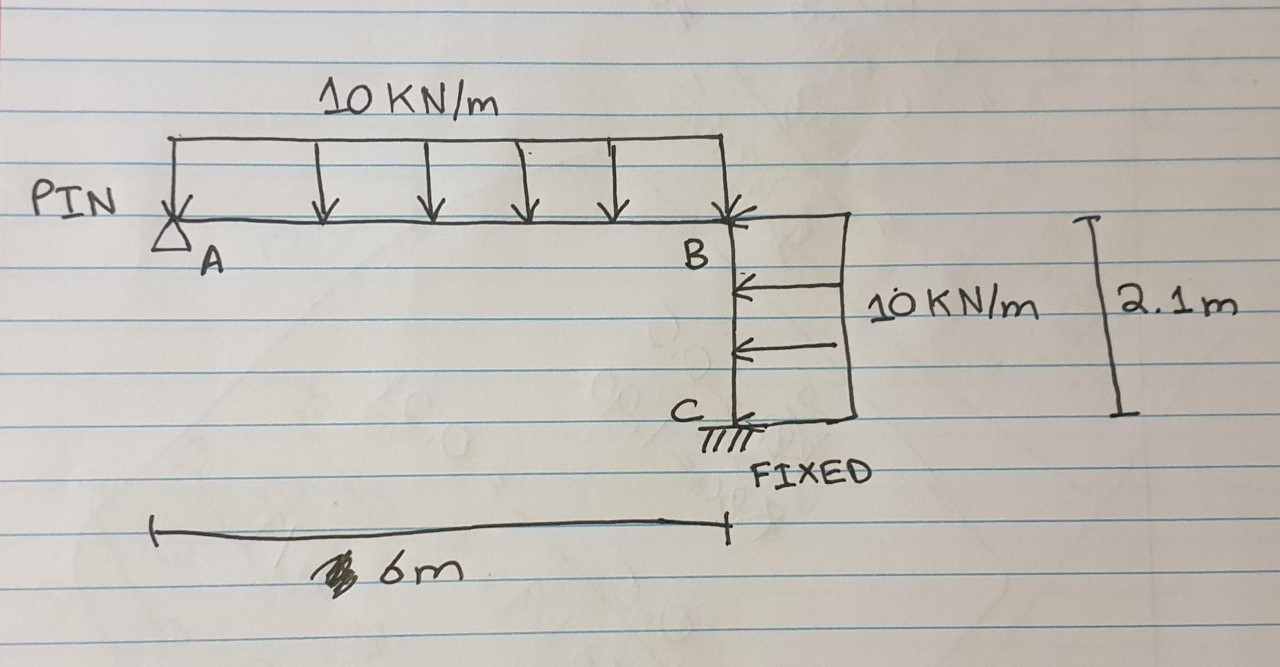 10 KN/m
PIN
A
B
10 KN/m
2.1m
C
FIXED
6m